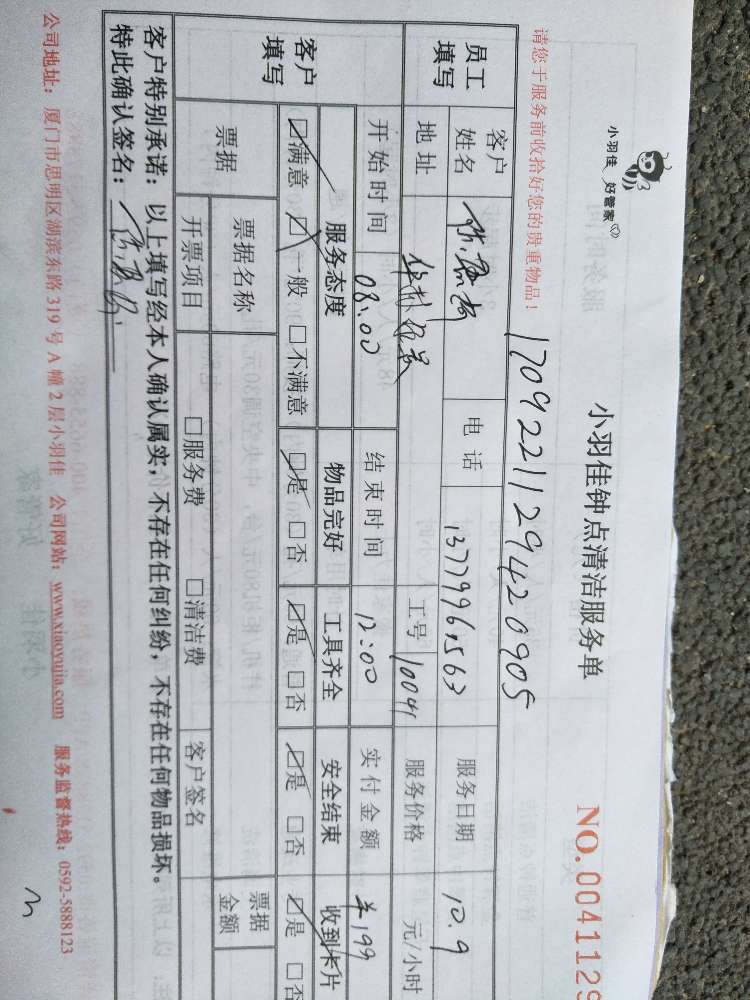 小羽佳 好管家
小羽佳钟点清洁服务单
NO.0041129
请您于服务前收拾好您的贵重物品！
1709221129420905
员工填写 客户姓名 电话 服务日期 10.9
地址 工号 10041 服务价格 元/小时
客户填写 开始时间 08:00 结束时间 12:00 实付金额 ¥199
服务态度 物品完好 工具齐全 安全结束 收到卡片
☑满意 ☑一般 □不满意 ☑是 □否 ☑是 □否 ☑是 □否 ☑是 □否
票据 票据名称 票据金额
开票项目 □服务费 □清洁费 客户签名
客户特别承诺：以上填写经本人确认属实，不存在任何纠纷，不存在任何物品损坏。
特此确认签名：
公司地址：厦门市思明区湖滨东路319号A幢2层小羽佳 公司网站：www.xiaoyujia.com 服务监督热线：0592-5888123